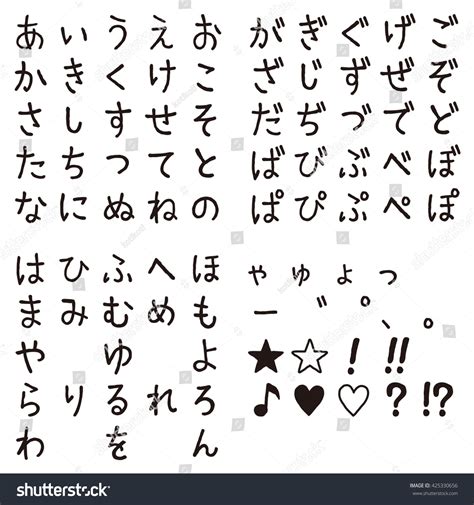 あいうえお
かきくけこ
さしすせそ
たちつてと
なにぬねの
がぎぐげご
ざじずぜぞ
だぢづでど
ばびぶべぼ
ぱぴぷぺぽ
はひふへほ
まみむめも
やゆよ
らりるれろ
わをん
ゃゅょっ
ー゛゜、。
★☆！!!
♪♥♡?!?
shutterstock
IMAGE ID: 425330656
www.shutterstock.com